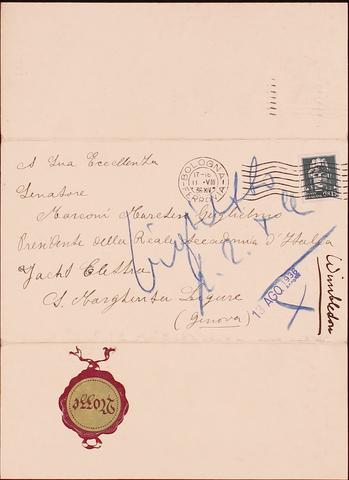 BOLOGNA
17-18
11·VIII
36 XIV
A Sua Eccellenza
Senatore
Marconi Marchese Guglielmo
Presidente della Reale Accademia d'Italia
Yacht Elettra
S Margherita Ligure
(Genova)
13 AGO. 1936
Wimbledon
Nozze